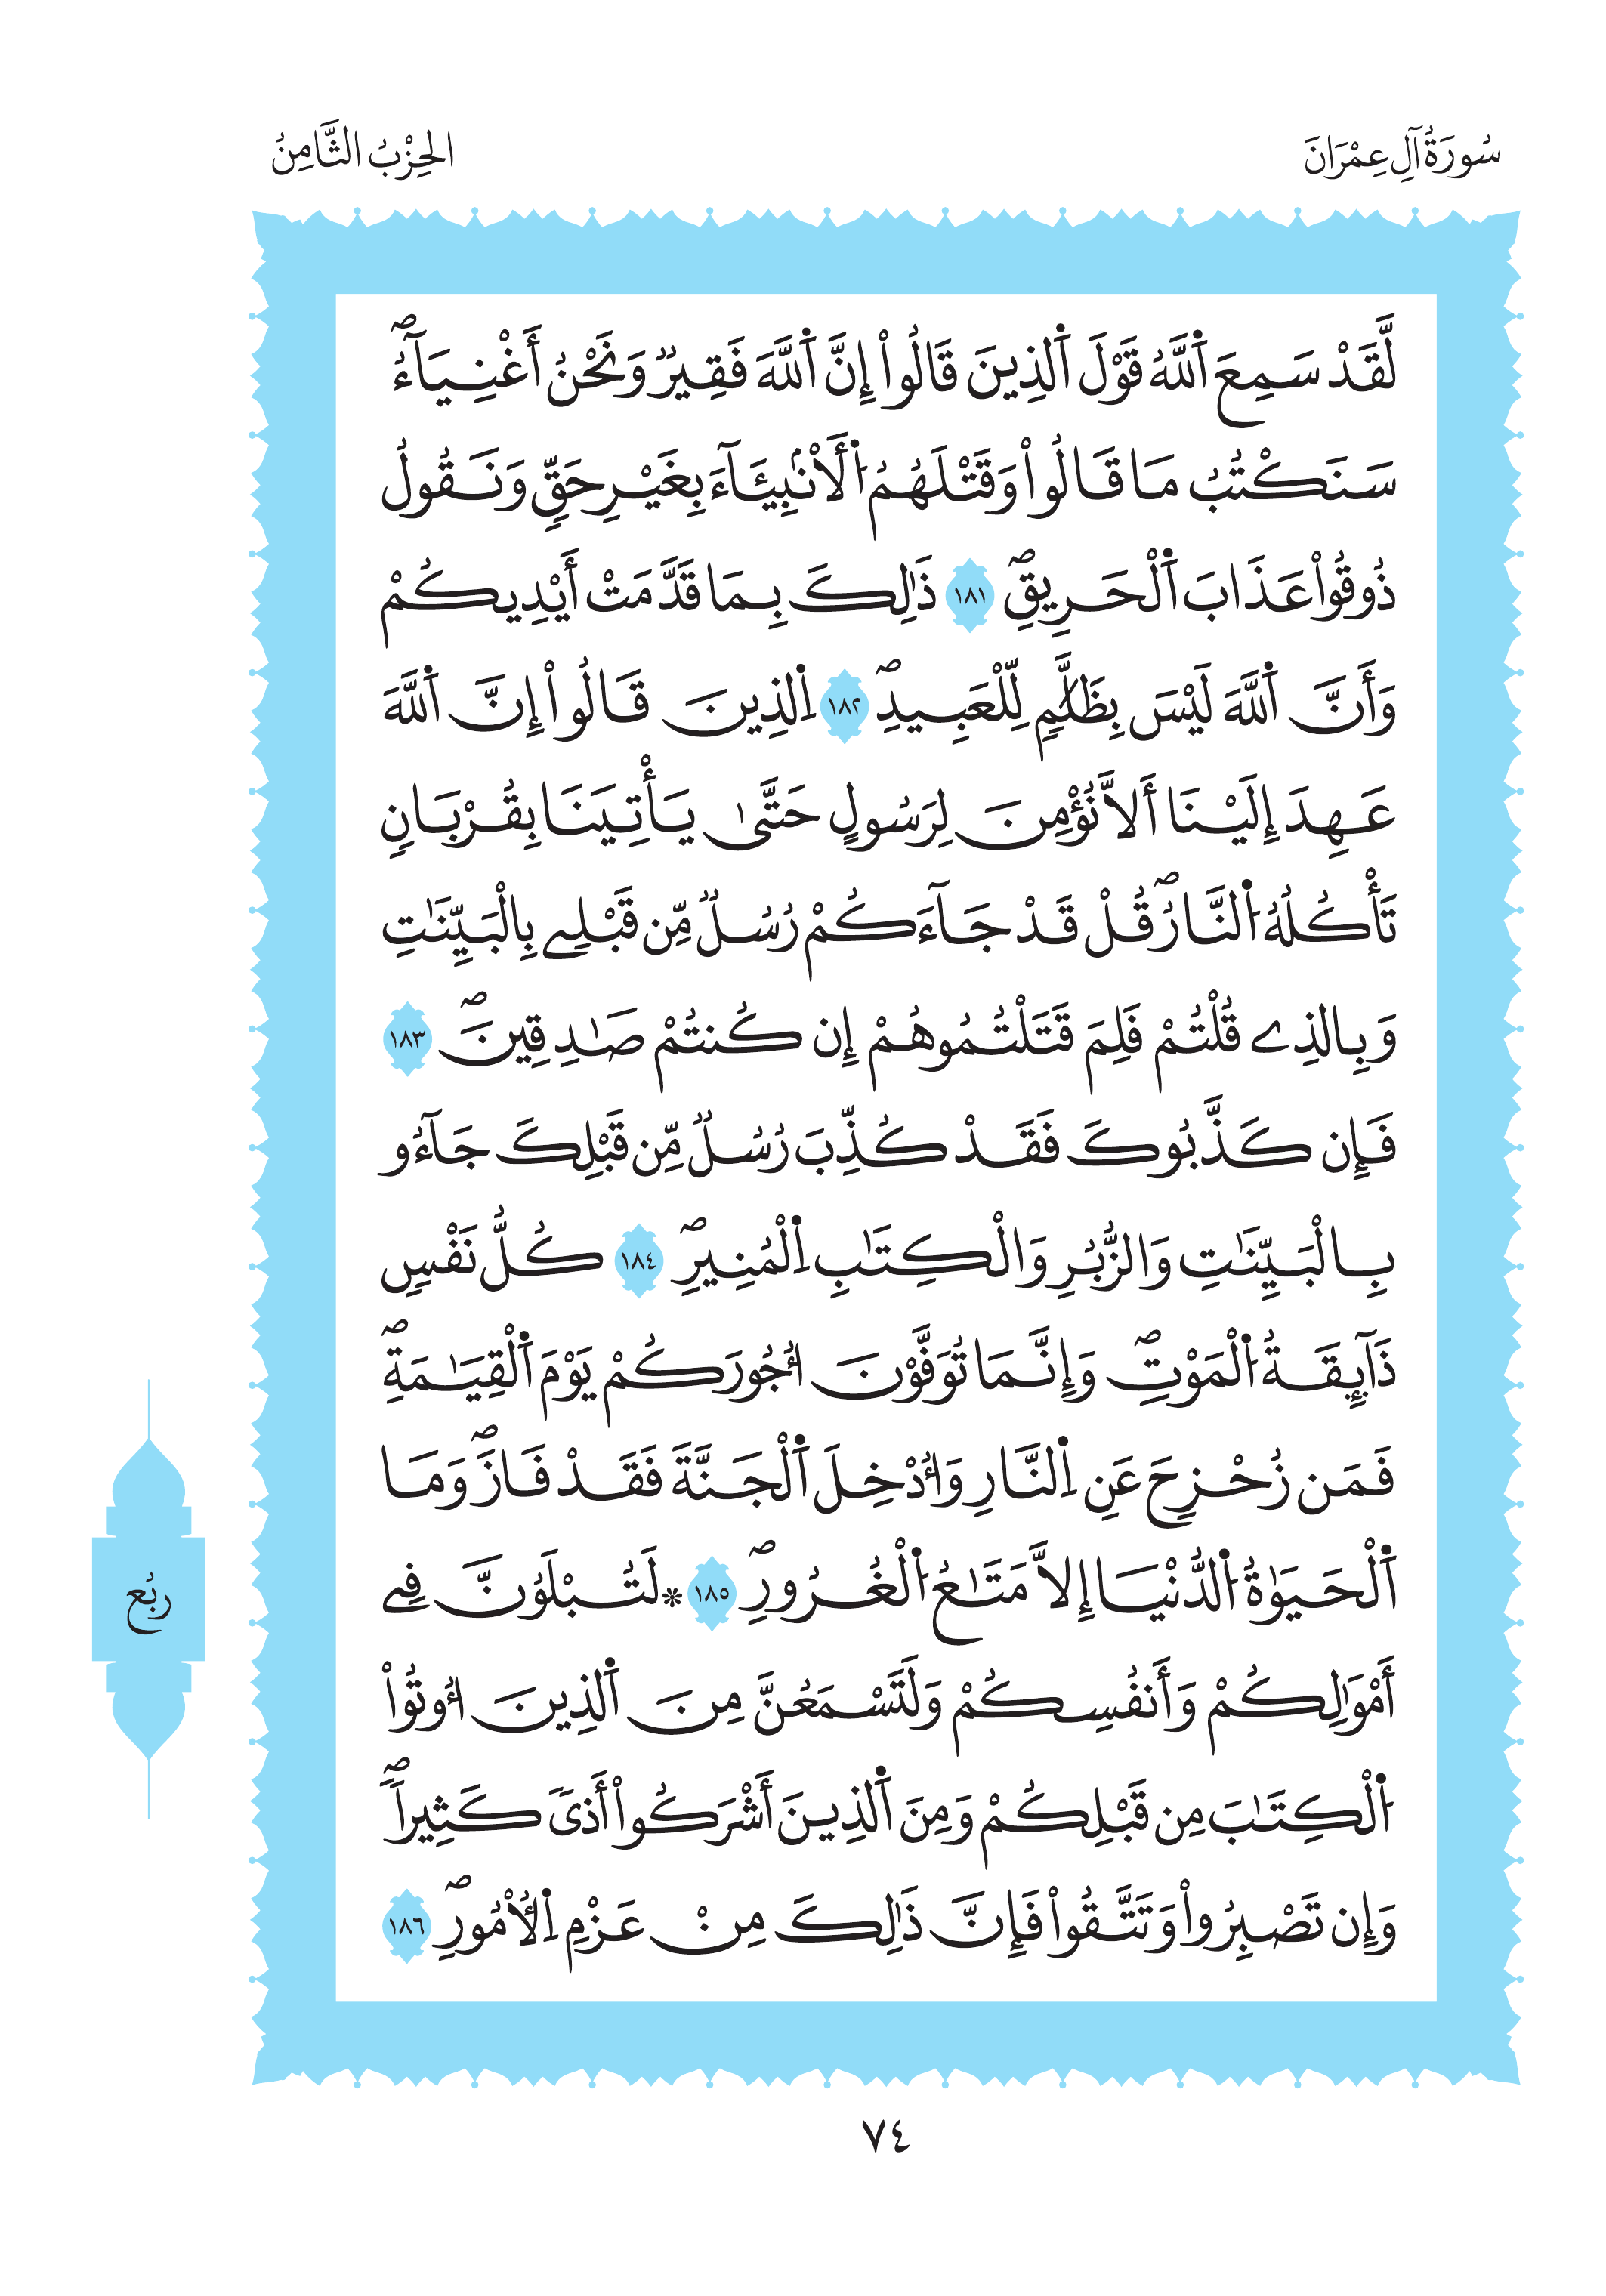 سُورَةُ آلِ عِمْرَانَ
الحِزْبُ الثَّامِنُ
لَّقَدْ سَمِعَ اَ۬للَّهُ قَوْلَ اَ۬لذِينَ قَالُوٓاْ إِنَّ اَ۬للَّهَ فَقِيرٞ وَنَحْنُ أَغْنِيَآءُۖ
سَنَكْتُبُ مَا قَالُواْ وَقَتْلَهُمُ اُ۬لَانۢبِيَآءَ بِغَيْرِ حَقّٖ وَنَقُولُ
ذُوقُواْ عَذَابَ اَ۬لْحَرِيقِۖ ١٨١ ذَٰلِكَ بِمَا قَدَّمَتْ أَيْدِيكُمْ
وَأَنَّ اَ۬للَّهَ لَيْسَ بِظَلَّٰمٖ لِّلْعَبِيدِۖ ١٨٢ اِ۬لذِينَ قَالُوٓاْ إِنَّ اَ۬للَّهَ
عَهِدَ إِلَيْنَآ أَلَّا نُؤْمِنَ لِرَسُولٍ حَتَّىٰ يَأْتِيَنَا بِقُرْبَانٖ
تَأْكُلُهُ اُ۬لنَّارُۖ قُلْ قَدْ جَآءَكُمْ رُسُلٞ مِّن قَبْلِے بِالْبَيِّنَٰتِ
وَبِالذِے قُلْتُمْ فَلِمَ قَتَلْتُمُوهُمْ إِن كُنتُمْ صَٰدِقِينَۖ ١٨٣
فَإِن كَذَّبُوكَ فَقَدْ كُذِّبَ رُسُلٞ مِّن قَبْلِكَ جَآءُو
بِالْبَيِّنَٰتِ وَالزُّبُرِ وَالْكِتَٰبِ اِ۬لْمُنِيرِۖ ١٨٤ كُلُّ نَفْسٖ
ذَآئِقَةُ اُ۬لْمَوْتِۖ وَإِنَّمَا تُوَفَّوْنَ أُجُورَكُمْ يَوْمَ اَ۬لْقِيَٰمَةِۖ
فَمَن زُحْزِحَ عَنِ اِ۬لنَّارِ وَأُدْخِلَ اَ۬لْجَنَّةَ فَقَدْ فَازَۖ وَمَا
اَ۬لْحَيَوٰةُ اُ۬لدُّنْيَآ إِلَّا مَتَٰعُ اُ۬لْغُرُورِۖ ١٨٥ ۞لَتُبْلَوُنَّ فِے
أَمْوَٰلِكُمْ وَأَنفُسِكُمْ وَلَتَسْمَعُنَّ مِنَ اَ۬لذِينَ أُوتُواْ
اُ۬لْكِتَٰبَ مِن قَبْلِكُمْ وَمِنَ اَ۬لذِينَ أَشْرَكُوٓاْ أَذىٗ كَثِيراٗۖ
وَإِن تَصْبِرُواْ وَتَتَّقُواْ فَإِنَّ ذَٰلِكَ مِنْ عَزْمِ اِ۬لُامُورِۖ ١٨٦
ربُع
٧٤